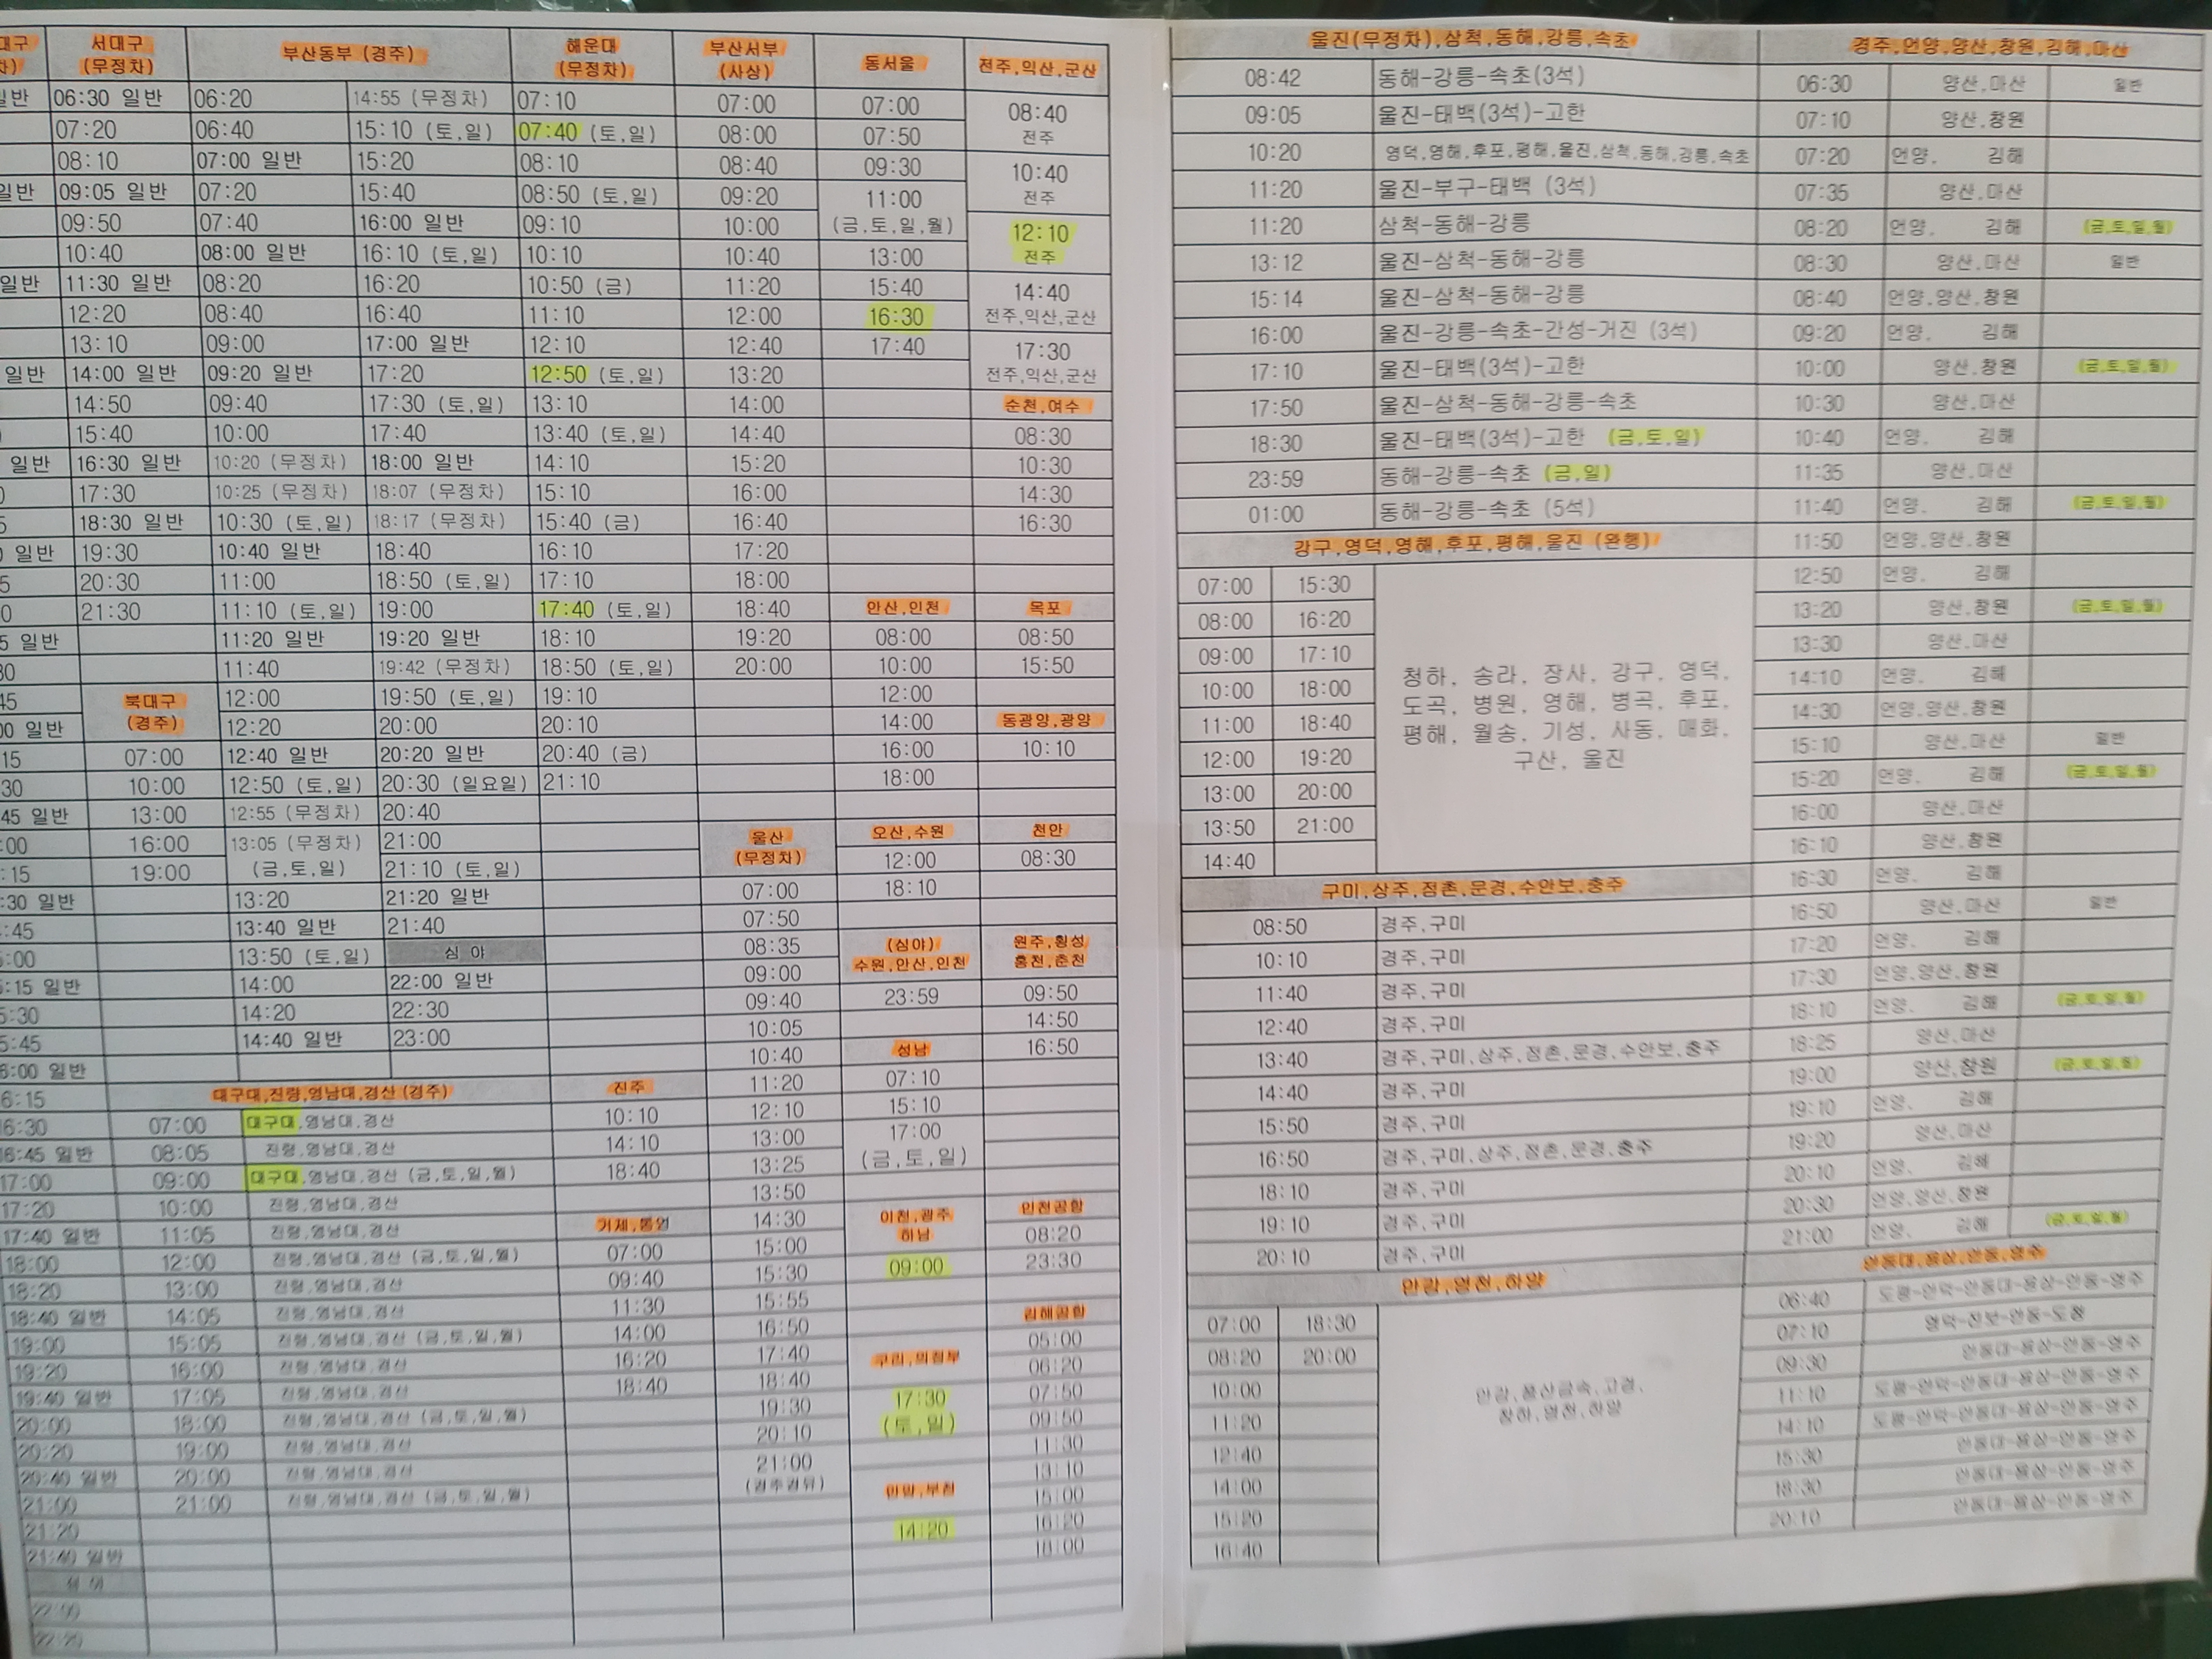 서대구
(무정차)
06:30 일반
07:20
08:10
09:05 일반
09:50
10:40
11:30 일반
12:20
13:10
14:00 일반
14:50
15:40
16:30 일반
17:30
18:30 일반
19:30
20:30
21:30
북대구
(경주)
07:00
10:00
13:00
16:00
19:00
부산동부 (경주)
06:20
06:40
07:00 일반
07:20
07:40
08:00 일반
08:20
08:40
09:00
09:20 일반
09:40
10:00
10:20 (무정차)
10:25 (무정차)
10:30 (토,일)
10:40 일반
11:00
11:10 (토,일)
11:20 일반
11:40
12:00
12:20
12:40 일반
12:50 (토,일)
12:55 (무정차)
13:05 (무정차)
(금,토,일)
13:20
13:40 일반
13:50 (토,일)
14:00
14:20
14:40 일반
14:55 (무정차)
15:10 (토,일)
15:20
15:40
16:00 일반
16:10 (토,일)
16:20
16:40
17:00 일반
17:20
17:30 (토,일)
17:40
18:00 일반
18:07 (무정차)
18:17 (무정차)
18:40
18:50 (토,일)
19:00
19:20 일반
19:42 (무정차)
19:50 (토,일)
20:00
20:20 일반
20:30 (일요일)
20:40
21:00
21:10 (토,일)
21:20 일반
21:40
심 야
22:00 일반
22:30
23:00
해운대
(무정차)
07:10
07:40 (토,일)
08:10
08:50 (토,일)
09:10
10:10
10:50 (금)
11:10
12:10
12:50 (토,일)
13:10
13:40 (토,일)
14:10
15:10
15:40 (금)
16:10
17:10
17:40 (토,일)
18:10
18:50 (토,일)
19:10
20:10
20:40 (금)
21:10
부산서부
(사상)
07:00
08:00
08:40
09:20
10:00
10:40
11:20
12:00
12:40
13:20
14:00
14:40
15:20
16:00
16:40
17:20
18:00
18:40
19:20
20:00
울산
(무정차)
07:00
07:50
08:35
09:00
09:40
10:05
10:40
11:20
12:10
13:00
13:25
13:50
14:30
15:00
15:30
15:55
16:50
17:40
18:40
19:30
20:10
21:00
(경주경유)
동서울
07:00
07:50
09:30
11:00
(금,토,일,월)
13:00
15:40
16:30
17:40
안산,인천
08:00
10:00
12:00
14:00
16:00
18:00
오산,수원
12:00
18:10
(심야)
수원,안산,인천
23:59
성남
07:10
15:10
17:00
(금,토,일)
이천,광주
하남
09:00
구리,의정부
17:30
(토,일)
안양,부천
14:20
전주,익산,군산
08:40
전주
10:40
전주
12:10
전주
14:40
전주,익산,군산
17:30
전주,익산,군산
순천,여수
08:30
10:30
14:30
16:30
목포
08:50
15:50
동광양,광양
10:10
천안
08:30
원주,횡성
홍천,춘천
09:50
14:50
16:50
인천공항
08:20
23:30
김해공항
05:00
06:20
07:50
09:50
11:30
13:10
15:00
16:20
18:00
대구대,진량,영남대,경산(경주)
07:00 대구대,영남대,경산
08:05 진량,영남대,경산
09:00 대구대,영남대,경산 (금,토,일,월)
10:00 진량,영남대,경산
11:05 진량,영남대,경산
12:00 진량,영남대,경산 (금,토,일,월)
13:00 진량,영남대,경산
14:05 진량,영남대,경산
15:05 진량,영남대,경산 (금,토,일,월)
16:00 진량,영남대,경산
17:05 진량,영남대,경산
18:00 진량,영남대,경산 (금,토,일,월)
19:00 진량,영남대,경산
20:00 진량,영남대,경산
21:00 진량,영남대,경산 (금,토,일,월)
진주
10:10
14:10
18:40
거제,통영
07:00
09:40
11:30
14:00
16:20
18:40
17:00
17:20
17:40 일반
18:00
18:20
18:40 일반
19:00
19:20
19:40 일반
20:00
20:20
20:40 일반
21:00
21:20
21:40 일반
울진(무정차),삼척,동해,강릉,속초
08:42 동해-강릉-속초(3석)
09:05 울진-태백(3석)-고한
10:20 영덕,영해,후포,평해,울진,삼척,동해,강릉,속초
11:20 울진-부구-태백 (3석)
11:20 삼척-동해-강릉
13:12 울진-삼척-동해-강릉
15:14 울진-삼척-동해-강릉
16:00 울진-강릉-속초-간성-거진 (3석)
17:10 울진-태백(3석)-고한
17:50 울진-삼척-동해-강릉-속초
18:30 울진-태백(3석)-고한 (금,토,일)
23:59 동해-강릉-속초 (금,일)
01:00 동해-강릉-속초 (5석)
강구,영덕,영해,후포,평해,울진 (완행)
07:00 15:30
08:00 16:20
09:00 17:10
10:00 18:00
11:00 18:40
12:00 19:20
13:00 20:00
13:50 21:00
14:40
청하, 송라, 장사, 강구, 영덕,
도곡, 병원, 영해, 병곡, 후포,
평해, 월송, 기성, 사동, 매화,
구산, 울진
구미,상주,점촌,문경,수안보,충주
08:50 경주,구미
10:10 경주,구미
11:40 경주,구미
12:40 경주,구미
13:40 경주,구미,상주,점촌,문경,수안보,충주
14:40 경주,구미
15:50 경주,구미
16:50 경주,구미,상주,점촌,문경,충주
18:10 경주,구미
19:10 경주,구미
20:10 경주,구미
안강,영천,하양
07:00 18:30
08:20 20:00
10:00
11:20
12:40
14:00
15:20
16:40
경주,언양,양산,창원,김해,마산
06:30 양산,마산 일반
07:10 양산,창원
07:20 언양, 김해
07:35 양산,마산
08:20 언양, 김해 (금,토,일,월)
08:30 양산,마산 일반
08:40 언양,양산,창원
09:20 언양, 김해
10:00 양산,창원 (금,토,일,월)
10:30 양산,마산
10:40 언양, 김해
11:35 양산,마산
11:40 언양, 김해 (금,토,일,월)
11:50 언양,양산,창원
12:50 언양, 김해
13:20 양산,창원 (금,토,일,월)
13:30 양산,마산
14:10 언양, 김해
14:30 언양,양산,창원
15:10 양산,마산 일반
15:20 언양, 김해 (금,토,일,월)
16:00 양산,마산
16:10 양산,창원
16:30 언양, 김해
16:50 양산,마산 일반
17:20 언양, 김해
17:30 언양,양산,창원
18:10 언양, 김해 (금,토,일,월)
18:25 양산,마산
19:00 양산,창원 (금,토,일,월)
19:10 언양, 김해
19:20 양산,마산
20:10 언양, 김해
20:30 언양,양산,창원
21:00 언양, 김해 (금,토,일,월)
안동대,용상,안동,영주
06:40
07:10
09:30 안동대-용상-안동-영주
11:10
14:10
15:30 안동대-용상-안동-영주
18:30 안동대-용상-안동-영주
20:10 안동대-용상-안동-영주